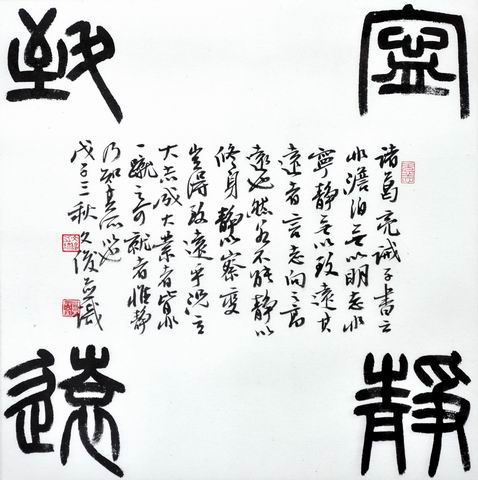 寧
靜
致
遠
諸葛亮誡子書云
非澹泊無以明志非
寧靜無以致遠其
遠者言志向之高
遠也然若不能靜以
修身靜以察變
豈得致遠乎況立
大志成大業者皆非
一蹴之可就者惟靜
乃知其
戊子三秋久俊並識